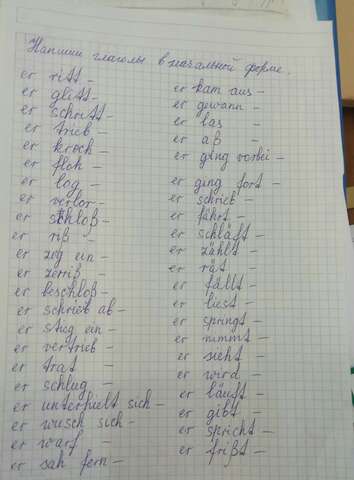 Напиши глаголы в начальной форме.
er ritt –
er glitt –
er schritt –
er trieb –
er kroch –
er floh –
er log –
er verlor –
er schloß –
er riß –
er zog an –
er zerriß –
er beschloß –
er schrieb ab –
er stieg ein –
er vertrieb –
er trat –
er schlug –
er unterhielt sich –
er wusch sich –
er warf –
er sah fern –
er kam aus –
er gewann –
er las –
er aß –
er ging vorbei –
er ging fort –
er schrieb –
er fährt –
er schläft –
er zählt –
er rät –
er fällt –
er liest –
er springt –
er nimmt –
er sieht –
er wird –
er läuft –
er gibt –
er spricht –
er frißt –